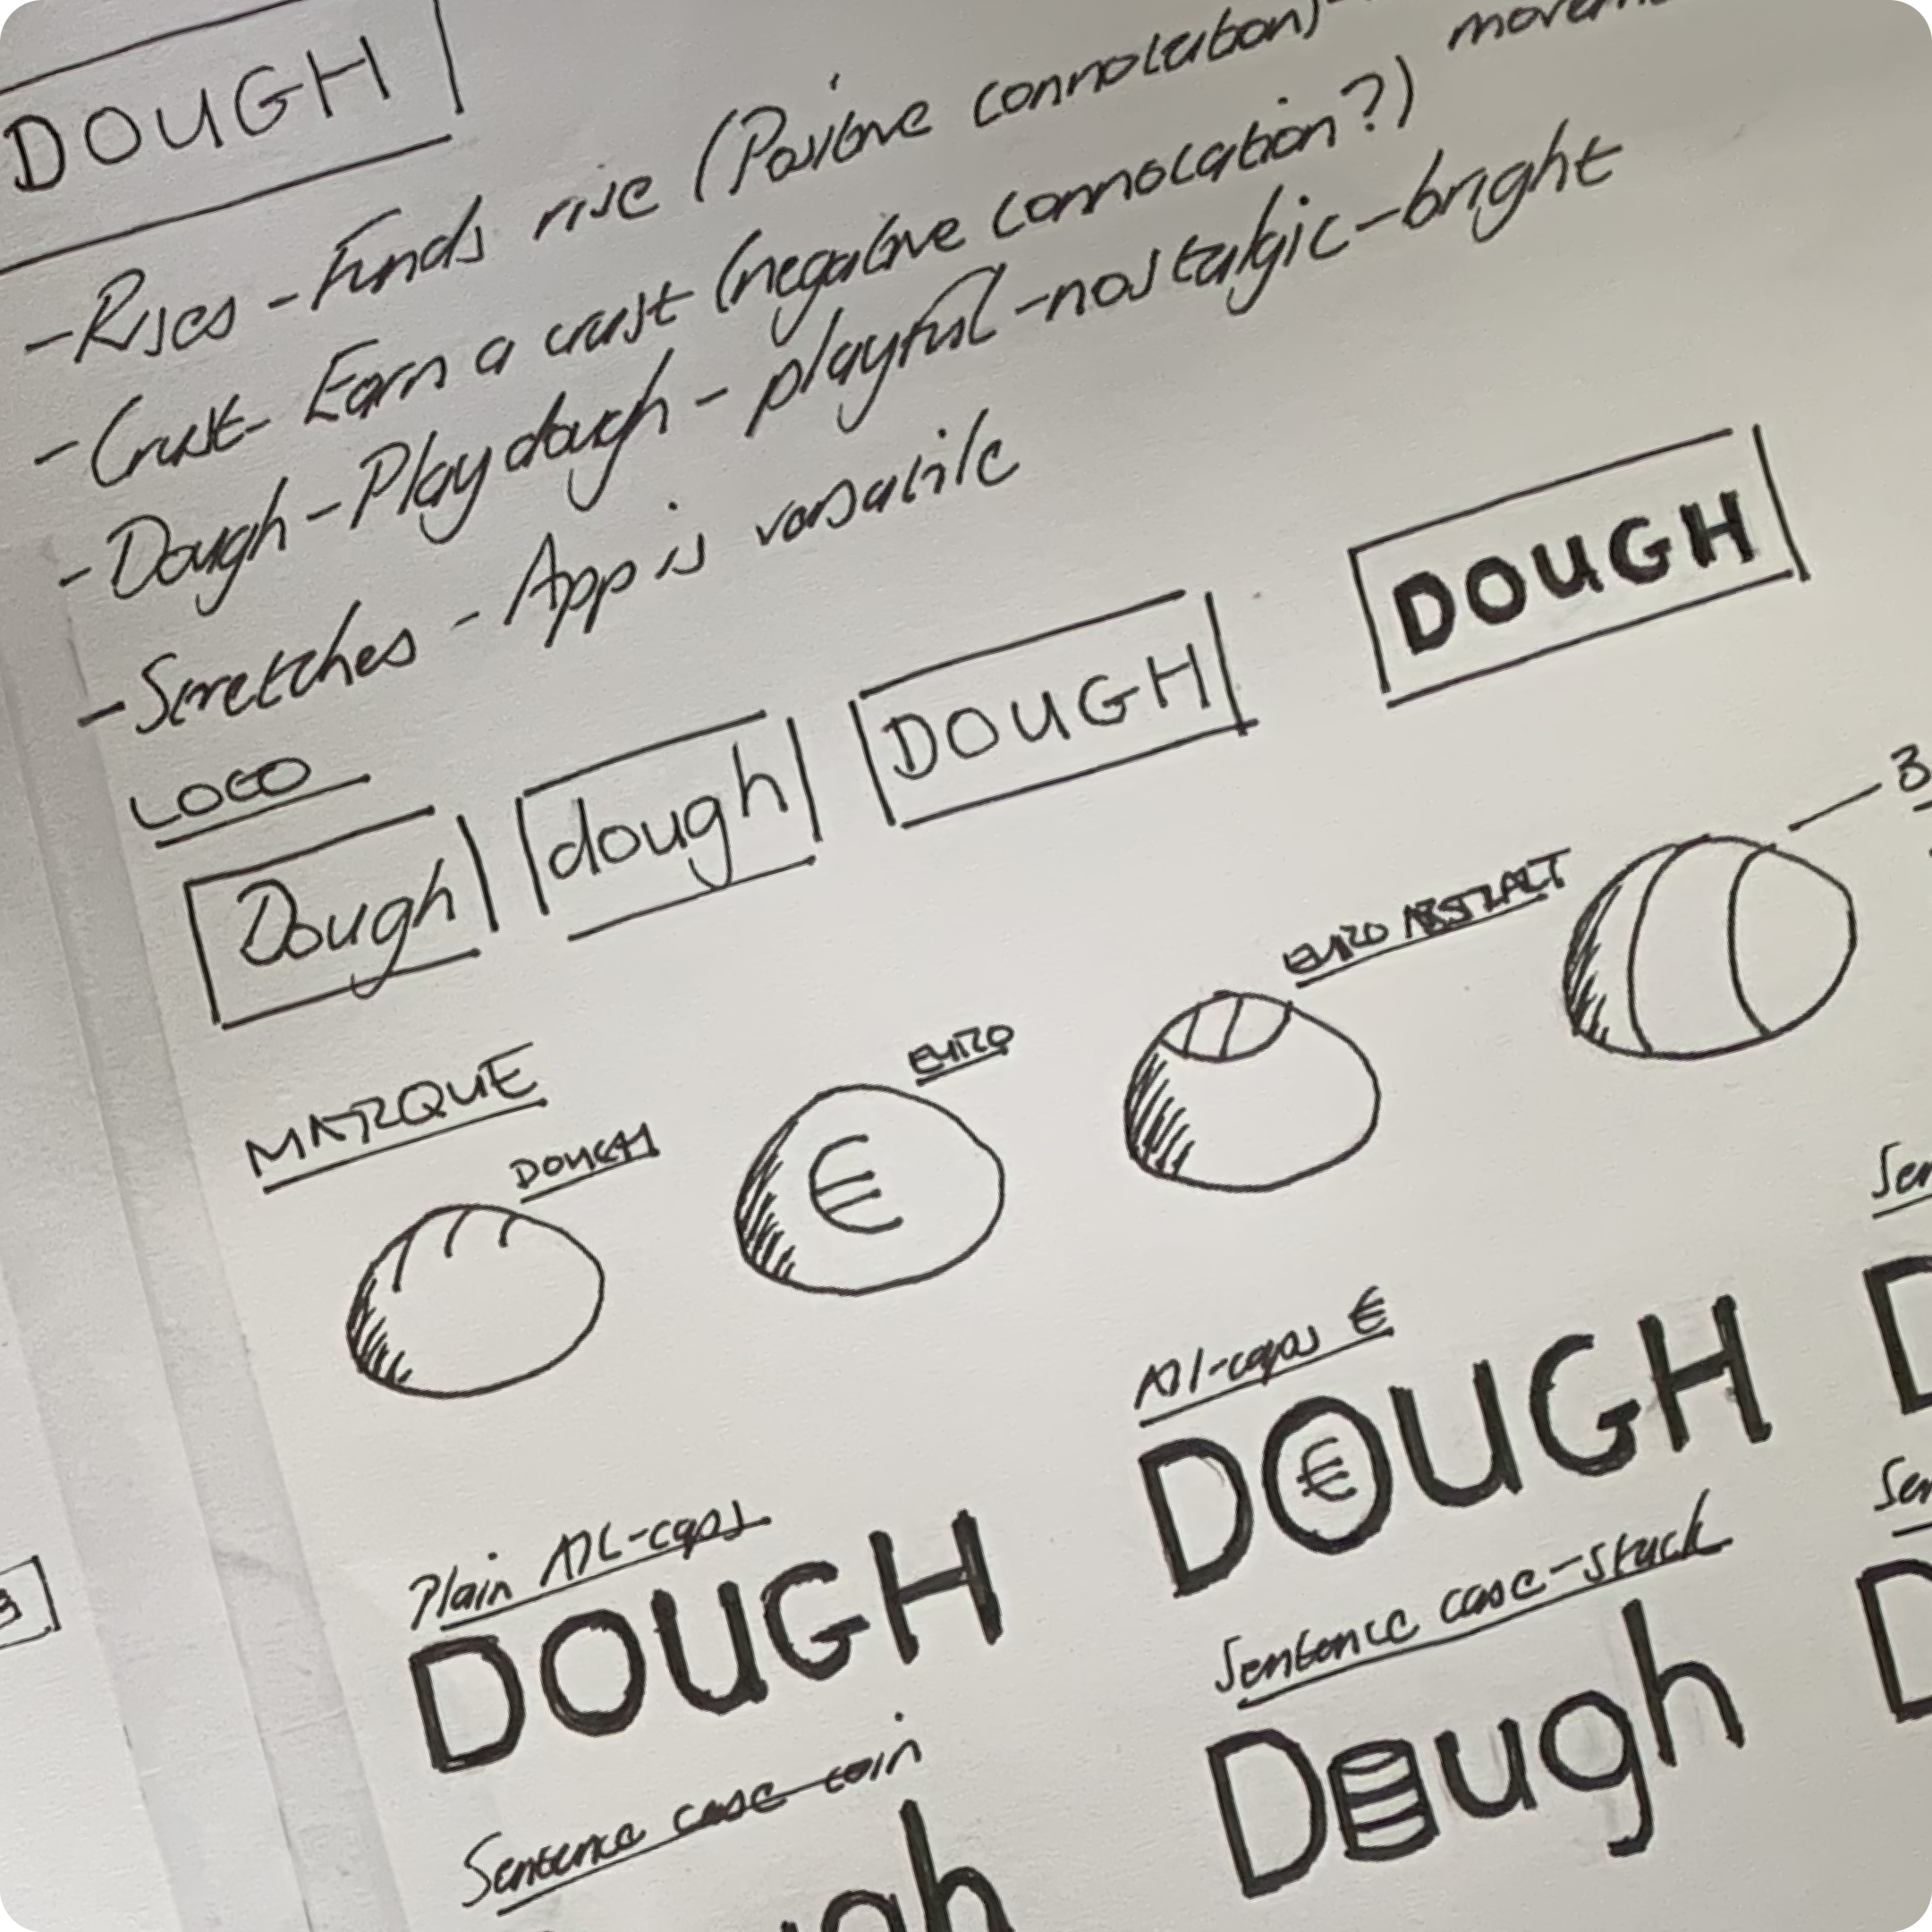 DOUGH
-Rises - Funds rise (Positive connotation)
-Crust- Earn a crust (negative connotation?)
-Dough-Playdough- playful-nostalgic-bright
-Stretches - App is versatile
LOGO
Dough dough DOUGH DOUGH
MARQUE
DOUGH EURO EURO ABSTRACT 3
€
All-caps €
DO€UGH
Plain All-caps
DOUGH
Sentence case-stack
Dough
Sentence case coin